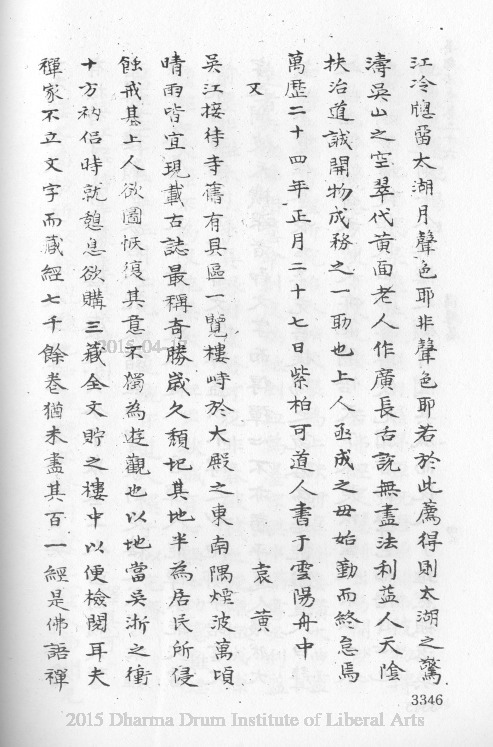 江冷牕留太湖月聲色耶非聲色耶若於此薦得則太湖之驚
濤吳山之空翠代黃面老人作廣長舌說無盡法利益人天陰
扶治道誠開物成務之一助也上人亟成之毋始勤而終怠焉
萬歷二十四年正月二十七日紫柏可道人書于雲陽舟中
又 袁黃
吳江接待寺舊有具區一覽樓峙於大殿之東南隅煙波萬頃
晴雨皆宜現載古誌最稱奇勝歲久頹圯其地半為居民所侵
蝕戒基上人欲圖恢復其意不獨為遊觀也以地當吳淅之衝
十方衲侶時就憩息欲購三藏全文貯之樓中以便檢閱耳夫
禪家不立文字而藏經七千餘卷猶未盡其百一經是佛語禪
3346
2015-04-
2015 Dharma Drum Institute of Liberal Arts